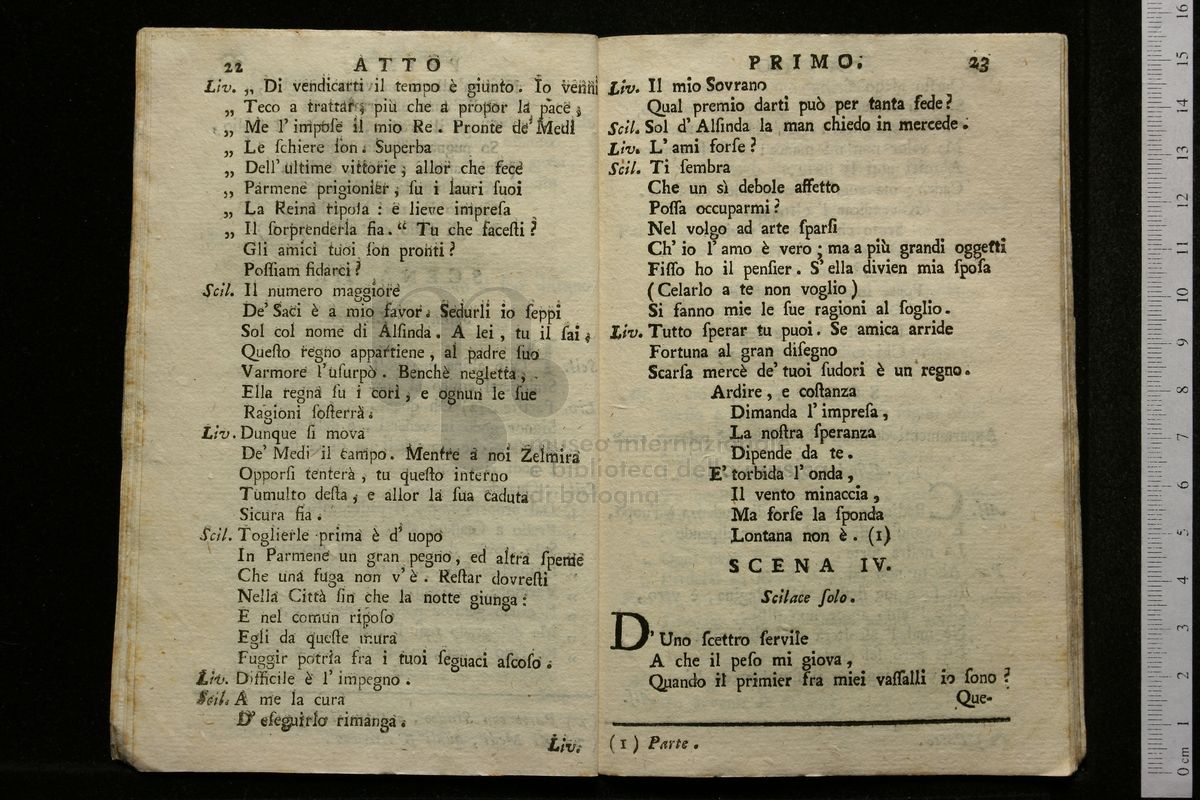 22 ATTO
Liv. „ Di vendicarti il tempo è giunto. Io venni
„ Teco a trattar, più che a propor la pace,
„ Me l' impoſe il mio Re. Pronte de' Medi
„ Le ſchiere ſon. Superba
„ Dell' ultime vittorie, allor che fece
„ Parmene prigionier, ſu i lauri ſuoi
„ La Reina ripoſa: è lieve impreſa
„ Il ſorprenderla fia. “ Tu che faceſti?
Gli amici tuoi ſon pronti?
Poſſiam fidarci?
Scil. Il numero maggiore
De' Saci è a mio favor. Sedurli io ſeppi
Sol col nome di Alſinda. A lei, tu il ſai,
Queſto regno appartiene, al padre ſuo
Varmore l' uſurpò. Benchè negletta,
Ella regna ſu i cori, e ognun le ſue
Ragioni ſoſterrà.
Liv. Dunque ſi mova
De' Medi il campo. Mentre a noi Zelmira
Opporſi tenterà, tu queſto interno
Tumulto deſta, e allor la ſua caduta
Sicura fia.
Scil. Toglierle prima è d' uopo
In Parmene un gran pegno, ed altra ſpeme
Che una fuga non v' è. Reſtar dovreſti
Nella Città ſin che la notte giunga:
E nel comun ripoſo
Egli da queſte mura
Fuggir potrìa fra i tuoi ſeguaci aſcoſo.
Liv. Difficile è l' impegno.
Scil. A me la cura
D' eſeguirlo rimanga.
Liv.
PRIMO. 23
Liv. Il mio Sovrano
Qual premio darti può per tanta fede?
Scil. Sol d' Alſinda la man chiedo in mercede.
Liv. L' ami forſe?
Scil. Ti ſembra
Che un sì debole affetto
Poſſa occuparmi?
Nel volgo ad arte ſparſi
Ch' io l' amo è vero; ma a più grandi oggetti
Fiſſo ho il penſier. S' ella divien mia ſpoſa
(Celarlo a te non voglio)
Si fanno mie le ſue ragioni al ſoglio.
Liv. Tutto ſperar tu puoi. Se amica arride
Fortuna al gran diſegno
Scarſa mercè de' tuoi ſudori è un regno.
Ardire, e coſtanza
Dimanda l' impreſa,
La noſtra ſperanza
Dipende da te.
E' torbida l' onda,
Il vento minaccia,
Ma forſe la ſponda
Lontana non è. (1)
SCENA IV.
Scilace ſolo.
D' Uno ſcettro ſervile
A che il peſo mi giova,
Quando il primier fra miei vaſſalli io ſono?
Que-
(1) Parte.
museo internazionale
e biblioteca della musica
di bologna
0 cm 1 2 3 4 5 6 7 8 9 10 11 12 13 14 15 16